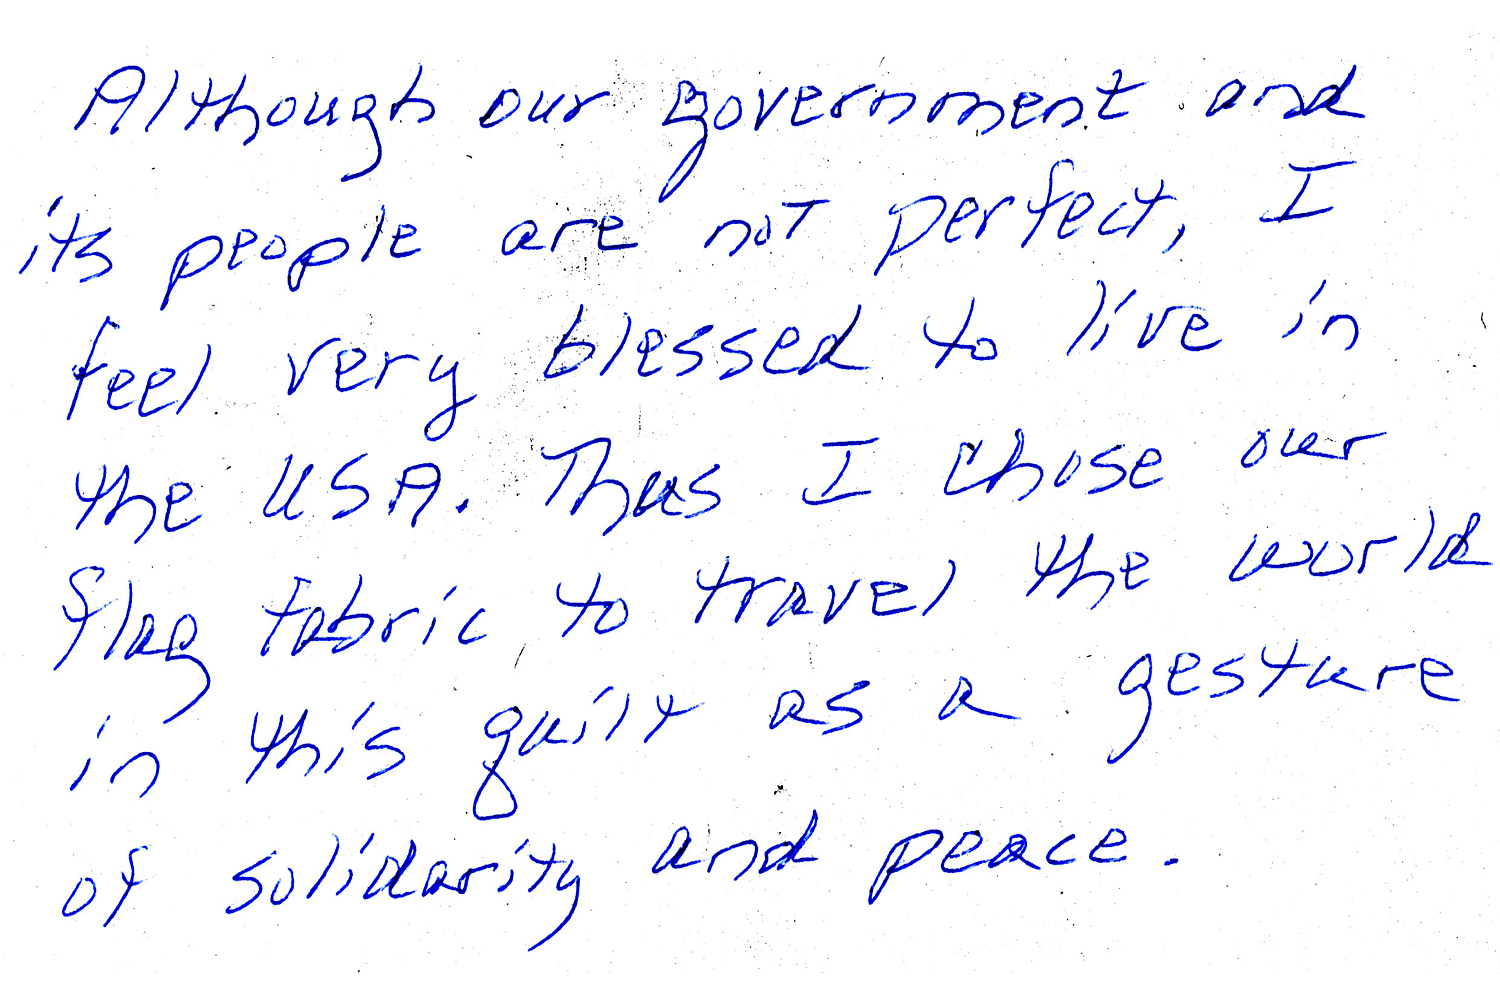 Although our government and
its people are not perfect, I
feel very blessed to live in
the USA. Thus I chose our
flag fabric to travel the world
in this quilt as a gesture
of solidarity and peace.